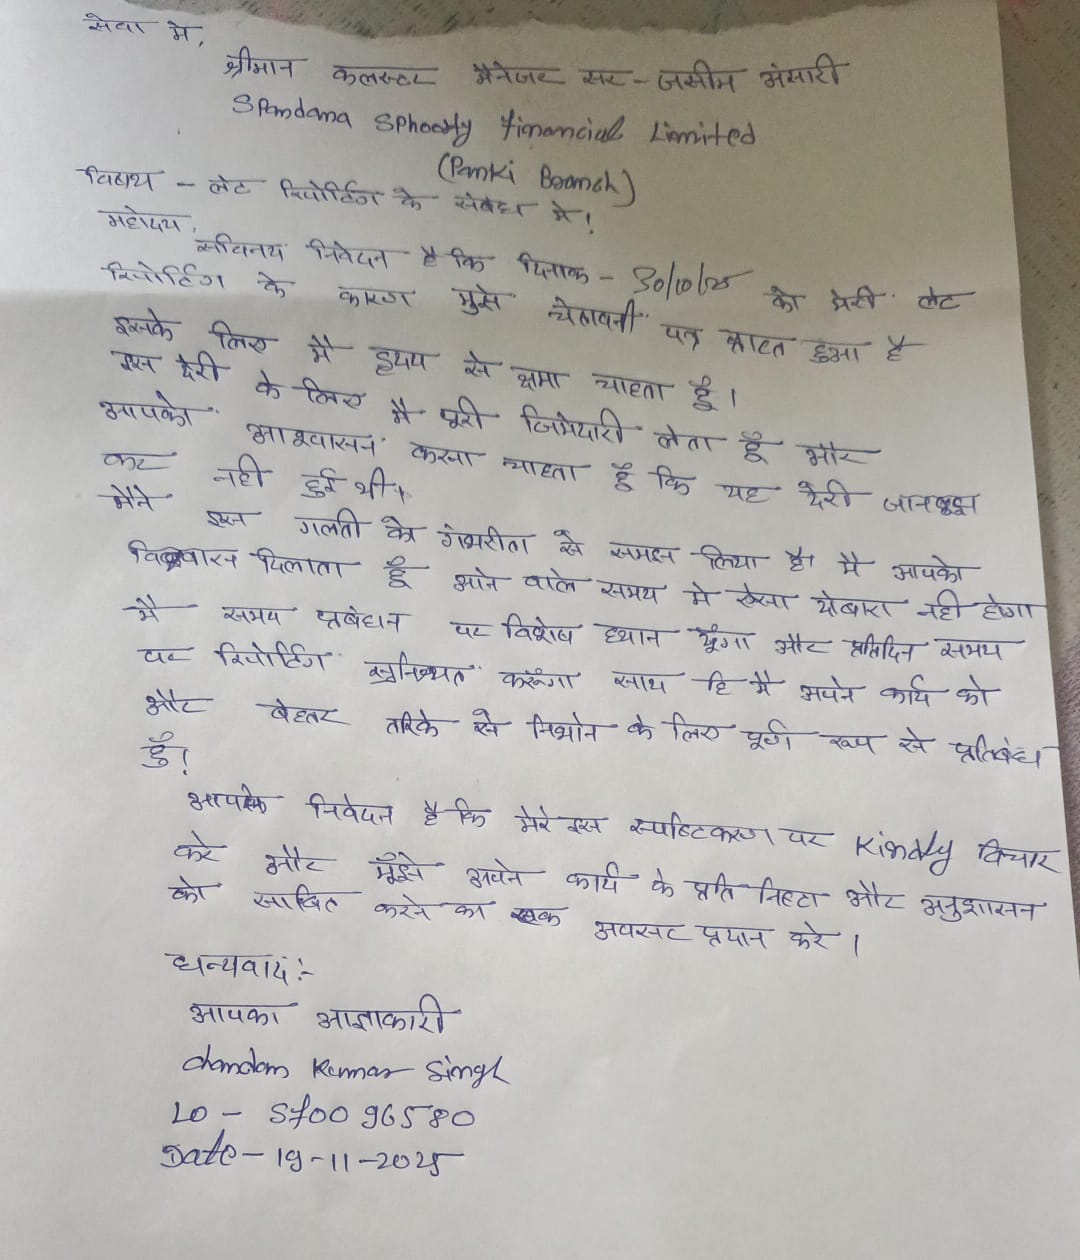 सेवा मे,
श्रीमान कलस्टर मैनेजर सर - जसीम अंसारी
Spandana Sphoorty Financial Limited
(Panki Branch)
विषय - लेट रिपोर्टिंग के संबंध मे!
महोदय,
सविनय निवेदन है कि दिनाक - 30/10/25 को मेरी लेट
रिपोर्टिंग के कारण मुझे चेतावनी पत्र प्राप्त हुआ है
इसके लिए मै हृदय से क्षमा चाहता हूँ।
इस देरी के लिए मै पूरी जिमेदारी लेता हूँ और
आपको आश्वासन करना चाहता हूँ कि यह देरी जानबूझ
कर नही हुई थी।
मैने इस गलती को गंभरीता से समझ लिया है। मै आपको
विश्वास दिलाता हूँ आने वाले समय मे ऐसा दोबारा नही होगा
मै समय प्रबंधन पर विशेष ध्यान दूँगा और प्रतिदिन समय
पर रिपोर्टिंग सुनिश्चत करूँगा साथ हि मै अपने कार्य को
और बेहतर तरिके से निभाने के लिए पूर्ण रूप से प्रतिबंध
हूँ!
आपसे निवेदन है कि मेरे इस स्पष्टिकरण पर Kindly विचार
करे और मुँझे अपने कार्य के प्रति निष्टा और अनुशासन
को साबित करने का एक अवसर प्रदान करे।
धन्यवाद :-
आपका आज्ञाकारी
Chandan Kumar Singh
LO - Sf0096580
Date - 19-11-2025